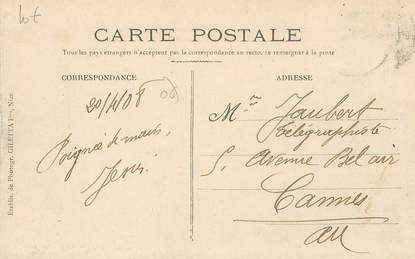 lot
CARTE POSTALE
Tous les pays étrangers n'acceptent pas la correspondance au recto, se renseigner à la poste
CORRESPONDANCE
ADRESSE
20/4/08
08
Poignée de mains,
Mr Jaubert
Télégraphiste
5, Avenue Bel air
Cannes
Etablis. de Photogr. GILETTA Fres, Nice